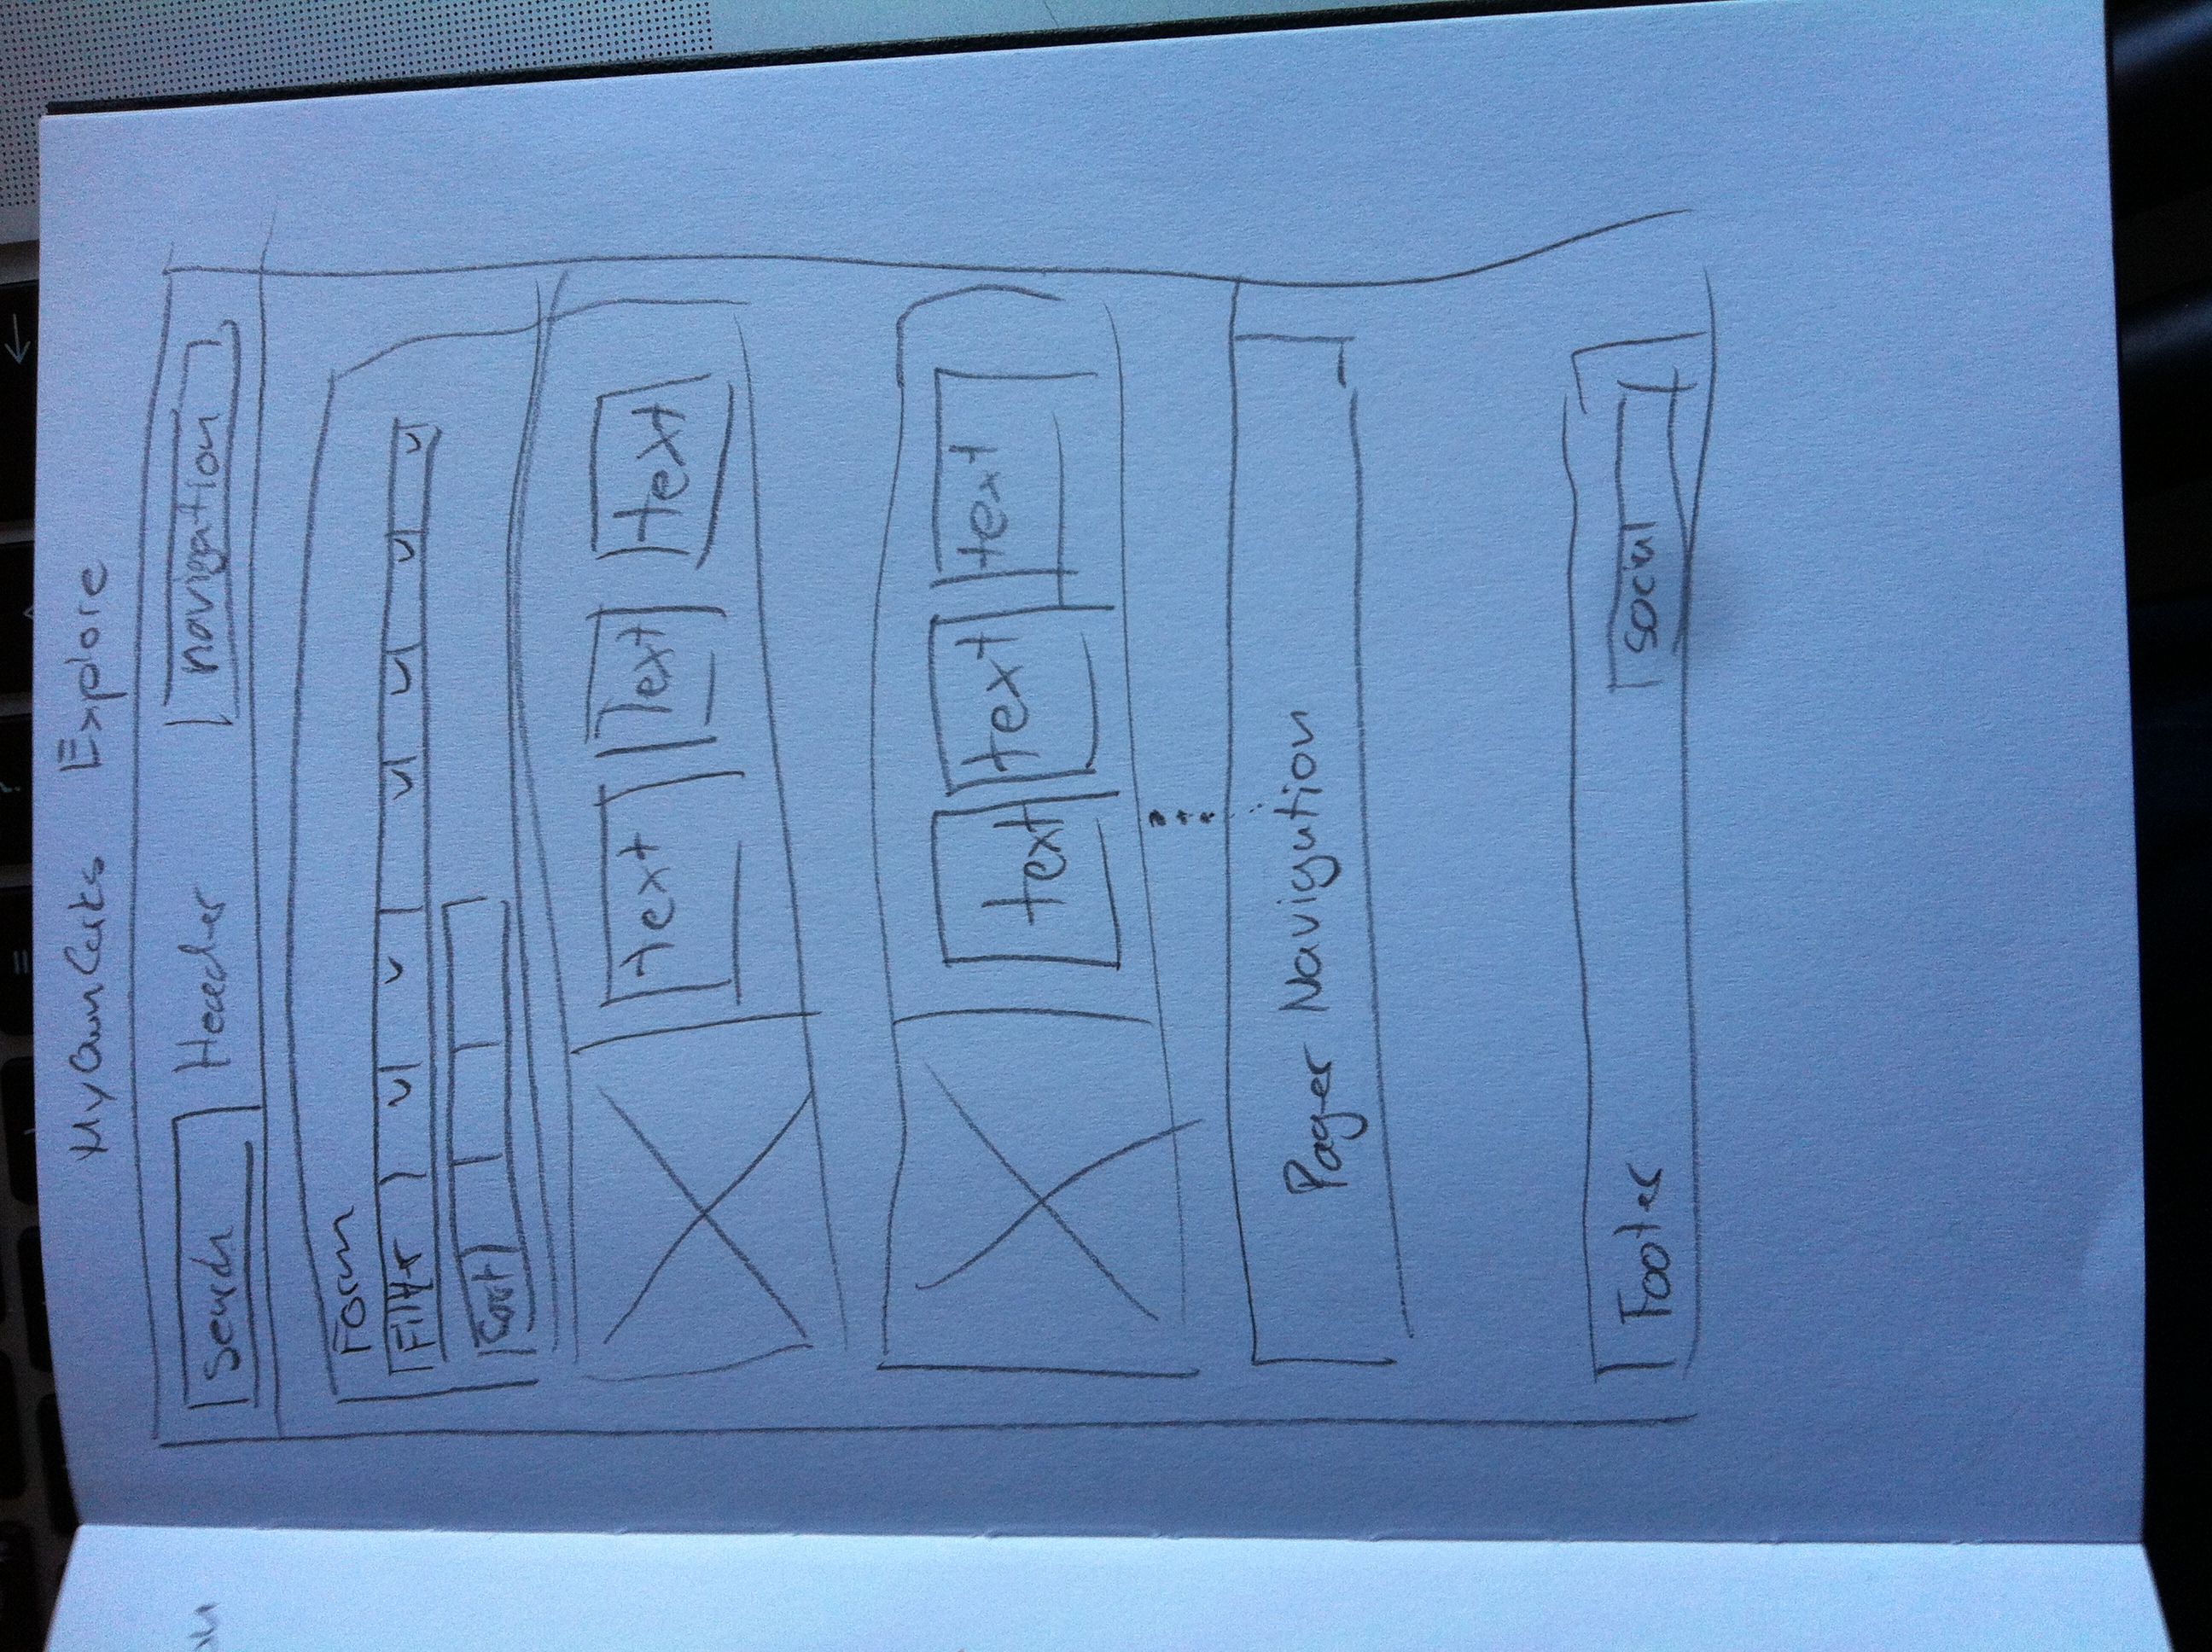 Explore
Search Header navigation
Form
Filter
Sort
text Text text
text text text
Pager Navigation
Footer social